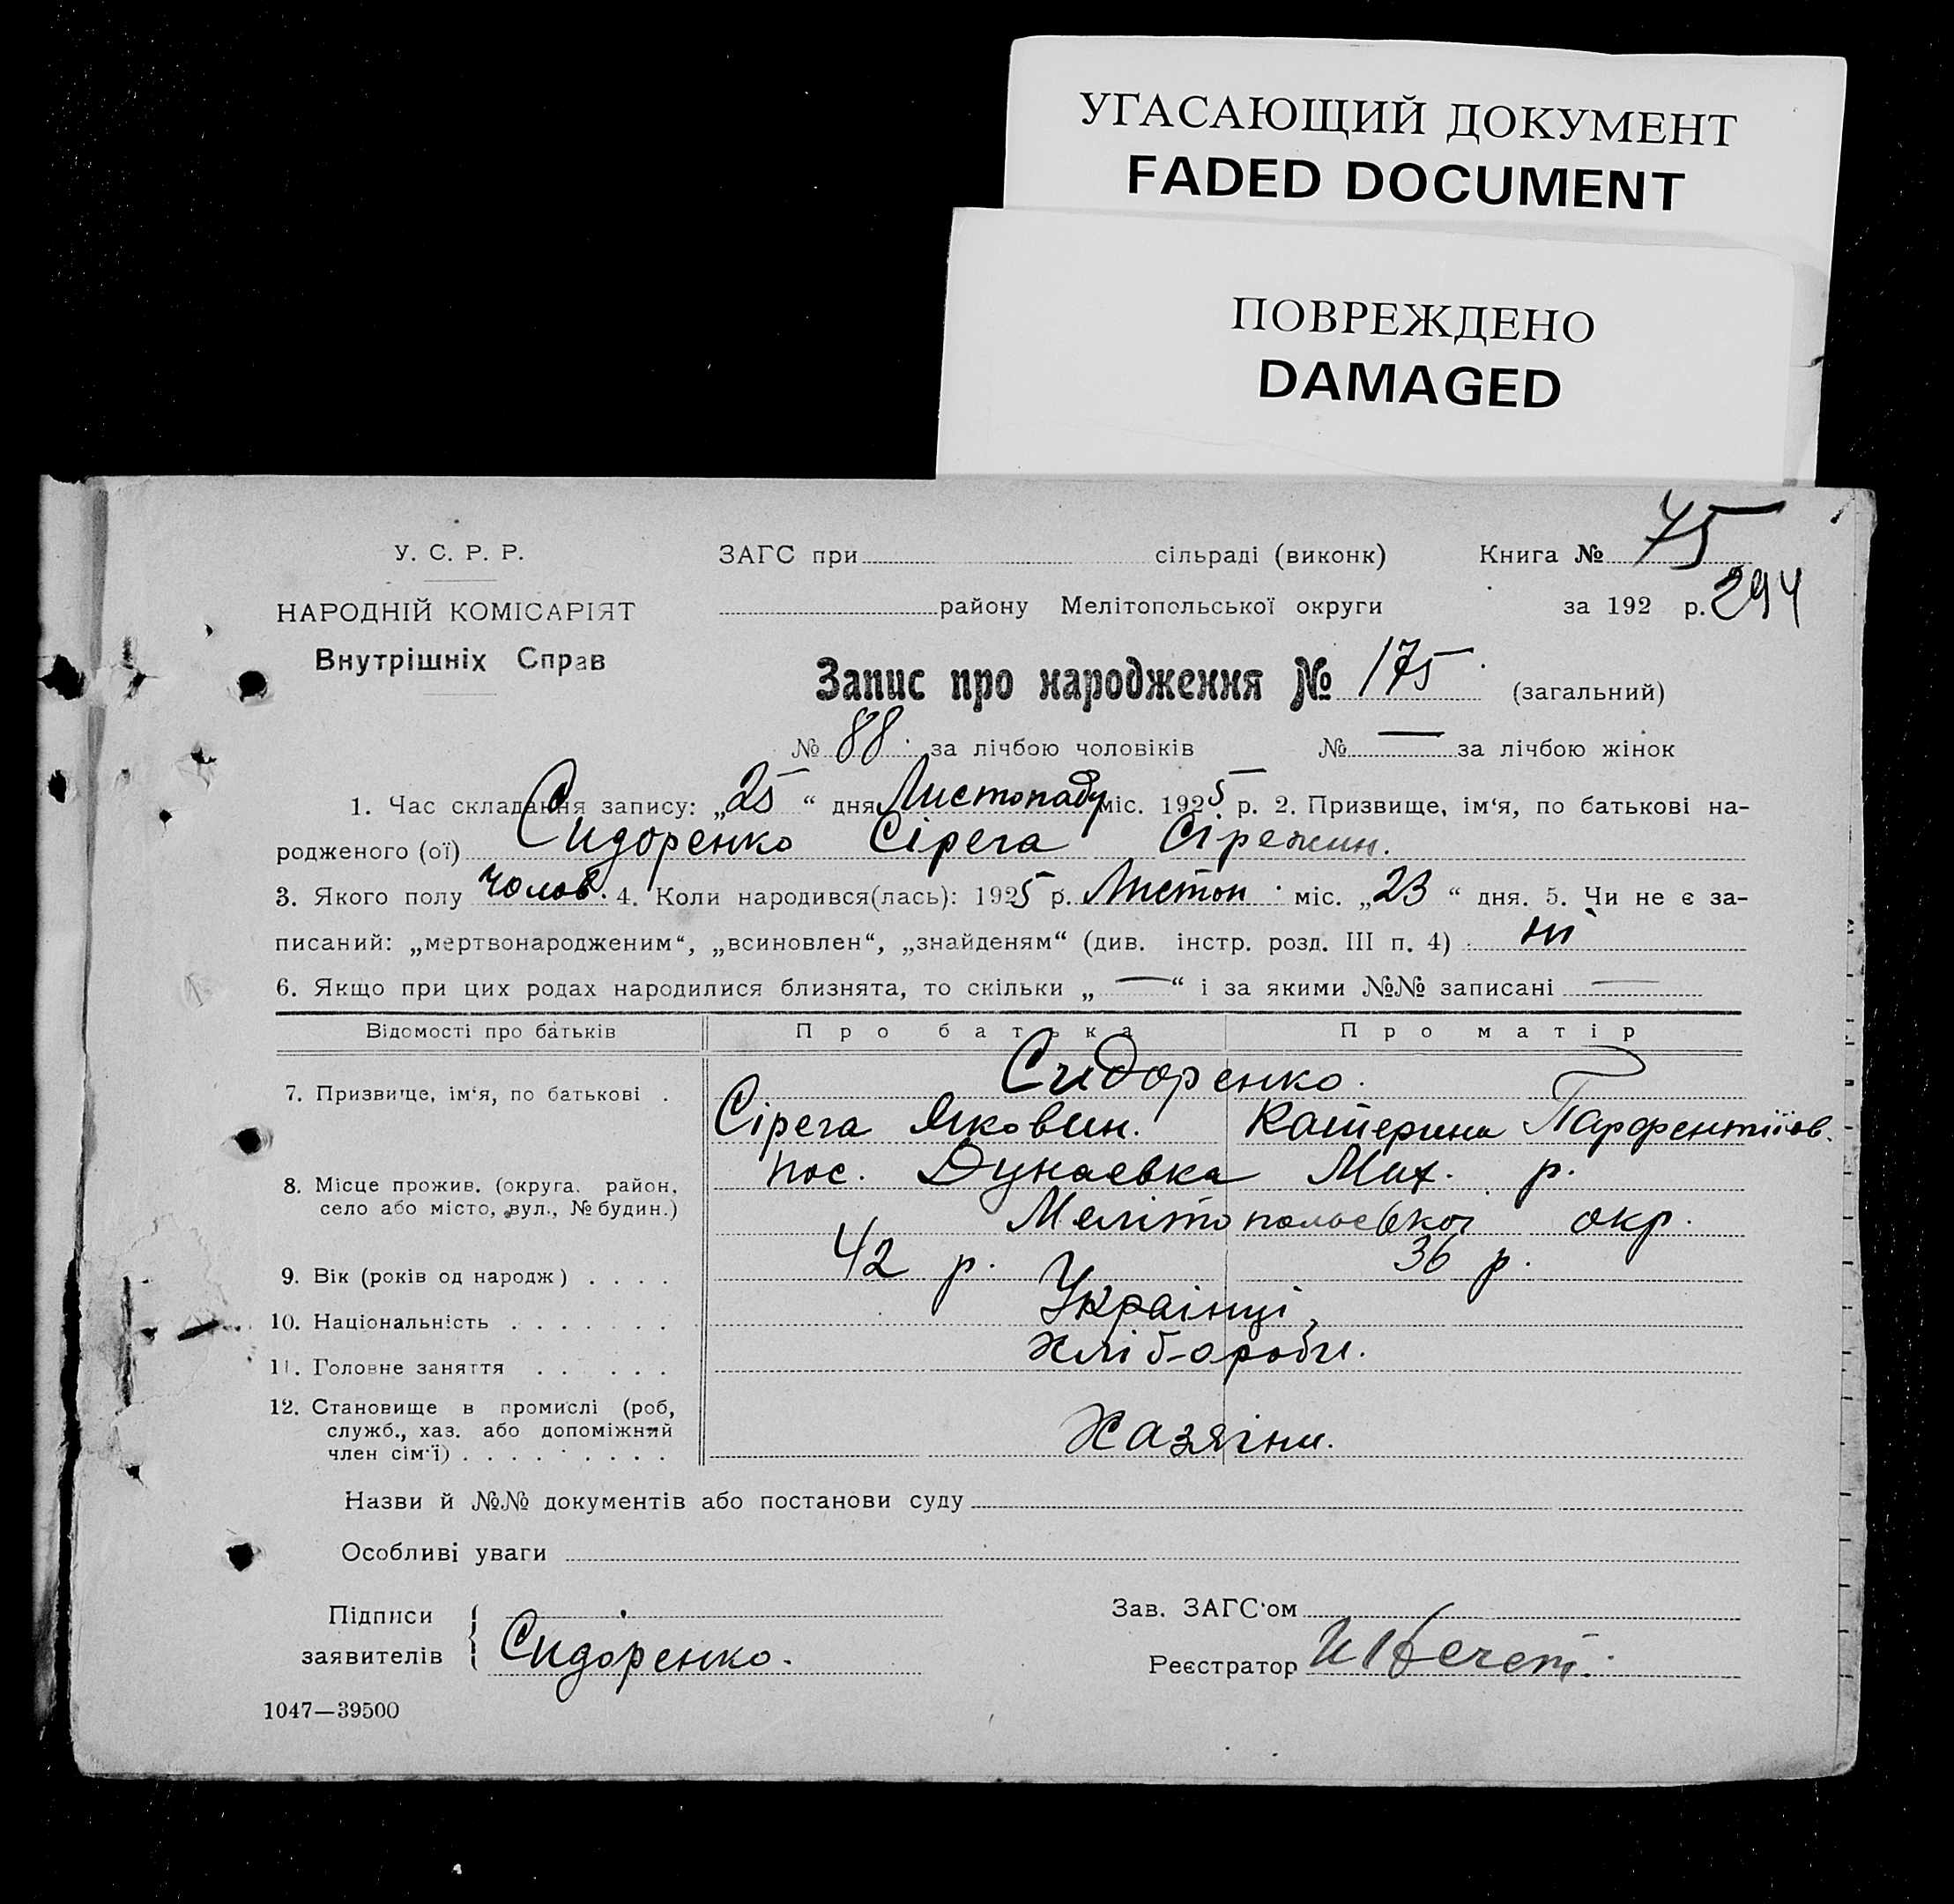 УГАСАЮЩИЙ ДОКУМЕНТ
FADED DOCUMENT
ПОВРЕЖДЕНО
DAMAGED
У. С. Р. Р.
НАРОДНІЙ КОМІСАРІЯТ
Внутрішніх Справ
ЗАГС при сільраді (виконк) Книга № 75
району Мелітопольської округи за 192 р. 294
Запис про народження № 175 (загальний)
№ 88. за лічбою чоловіків № — за лічбою жінок
1. Час складання запису: „25“ дня Листопаду міс. 1925 р. 2. Призвище, ім‘я, по батькові на-
родженого (ої) Сидоренко Сірега Сірежин.
3. Якого полу чолов. 4. Коли народився(лась): 1925 р. Листоп. міс. „23“ дня. 5. Чи не є за-
писаний: „мертвонародженим“, „всиновлен“, „знайденям“ (див. інстр. розд. III п. 4) ні
6. Якщо при цих родах народилися близнята, то скільки „—“ і за якими №№ записані —
Відомості про батьків Про батька Про матір
Сидоренко.
7. Призвище, ім‘я, по батькові .
Сірега Яковин. Катерина Парфентіїов.
пос. Дунаевка Мих. р.
8. Місце прожив. (округа. район,
село або місто, вул., № будин.)
Мелітопольської окр.
9. Вік (років од народж) . . . . 42 р. 36 р.
10. Національність . . . . . . . Українці,
11. Головне заняття . . . . . . Хліб-ороби.
12. Становище в промислі (роб,
служб., хаз. або допоміжний
член сім‘ї) . . . . . . . . Хазяїни.
Назви й №№ документів або постанови суду
Особливі уваги
Підписи
заявителів { Сидоренко.
Зав. ЗАГС‘ом
Реєстратор
1047—39500